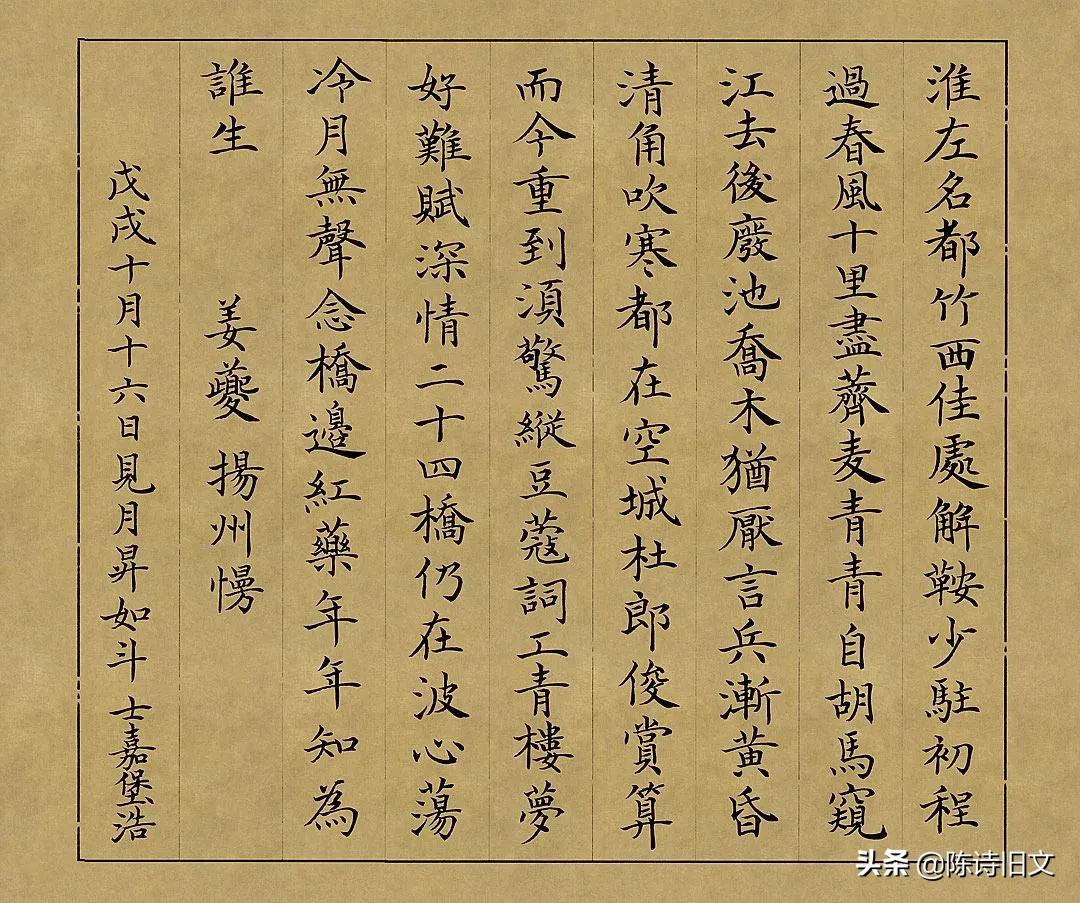 淮左名都竹西佳處解鞍少駐初程
過春風十里盡薺麦青青自胡馬窺
江去後廢池喬木猶厭言兵漸黃昏
清角吹寒都在空城杜郎俊賞算
而今重到須驚縱豆蔻詞工青樓夢
好難賦深情二十四橋仍在波心蕩
冷月無聲念橋邊紅藥年年知為
誰生 姜夔 揚州慢
戊戌十月十六日見月昇如斗 士嘉堡浩
头条 @陈诗旧文